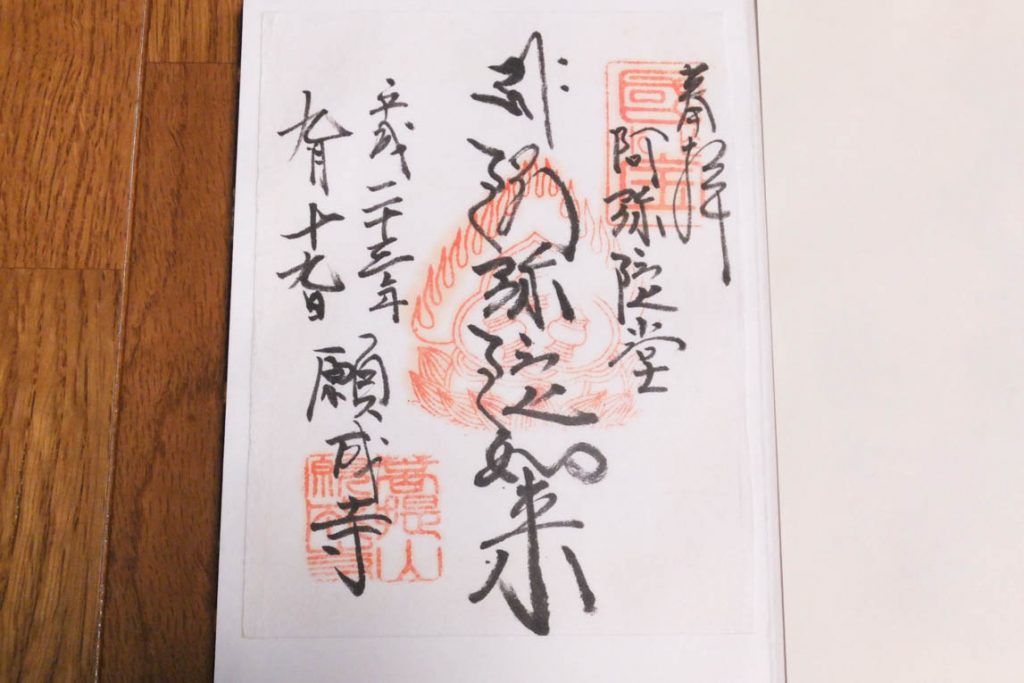 奉拝
阿弥陀堂
国宝
阿弥陀如来
平成二十三年
九月十九日
願成寺